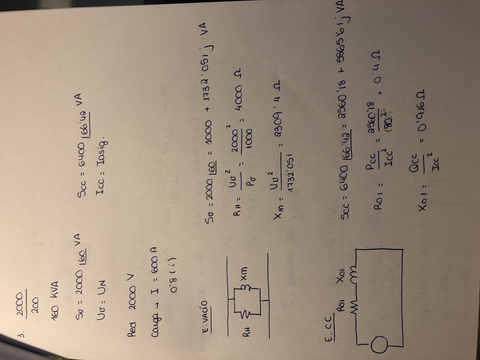 3. 2000
200
160 KVA
So = 2000 |60 VA
Scc = 6400 |66'42 VA
Uo = UN
Icc = Iasig.
Red 2000 V
Carga → I = 600 A
0'8 (i)
E. VACÍO
RH
Xm
So = 2000 |60 = 1000 + 1732'051 j VA
RH = Uo² / Po = 2000² / 1000 = 4000 Ω
Xm = Uo² / 1732'051 = 2309'4 Ω
E. CC
R01 X01
Scc = 6400 |66'42 = 2560'18 + 5865'61 j VA
R01 = Pcc / Icc² = 2560'18 / 80² = 0'4 Ω
X01 = Qcc / Icc² = 0'916 Ω